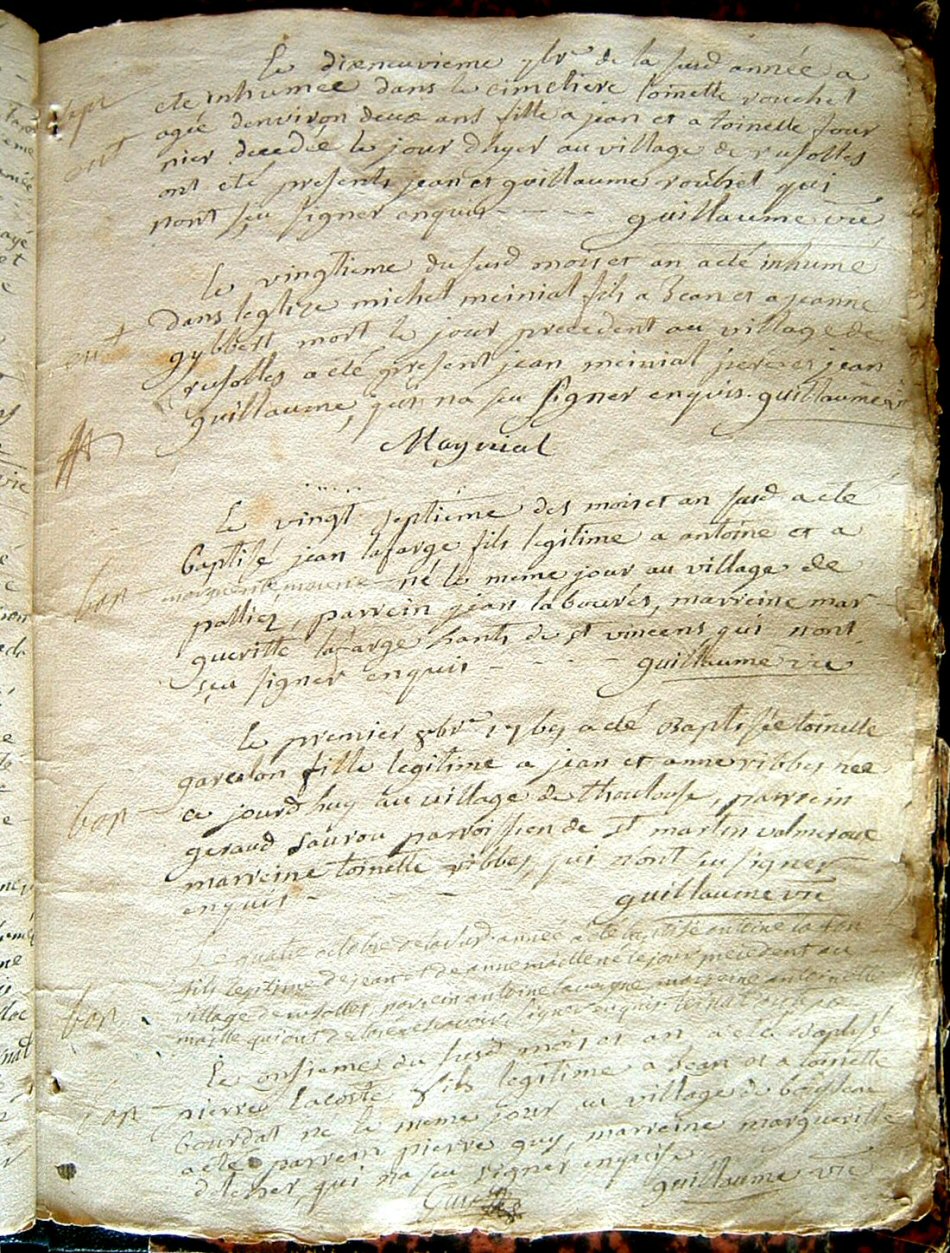 Le dixneuvieme 7bre de la susd année a
eté inhumée dans le cimetiere toinette rouchet
agée denviron deux ans fille a jean et a toinette four
nier decedée le jour dhyer au village de rusolles
ont eté presents jean et guillaume rouchet qui
nont sçu signer enquis guillaume vre
Le vingtieme du susd mois et an a eté inhumé
dans leglize michel meinial fils a Jean et a jeanne
gybbert mort le jour precedent au village de
rusolles a eté present jean meinial pere et jean
guillaume qui na sçu signer enquis. guillaume
Maynial
Le vingt septieme des mois et an susd a eté
Baptisé jean lafarge fils legitime a antoine et a
né le meme jour au village de
pallier, parrein jean labourés, marreine mar
gueritte lafarge hants de st vincens qui nont
sçu signer enquis guillaume vre
bap
Le premier 8bre 1769 a eté Baptisée toinette
garcelon fille legitime a jean et anne ribbes née
ce jourdhuy au village de thoulouse, parrein
geraud saurou parroissien de St martin valmeroux
marreine toinette ribbes, qui nont sçu signer
enquis guillaume vre
bap
Le quatre octobre de la susd année a eté baptisé antoine
fils legitime de jean et de anne maille né le jour precedent au
village de rusolles, parrein antoine lavergne marreine antoinette
maille qui ont declaré ne scavoir signer enquis
bap
Le onsieme du susd mois et an a eté Baptisé
pierre Lacoste fils legitime a Jean et a toinette
bourdat né le meme jour au village de
a eté parrein pierre guy, marreine margueritte
qui na sçu signer enquise
guillaume vre
bap